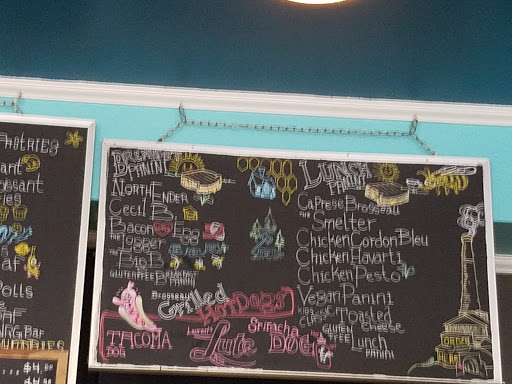 ant
oissant
ies
Polls
NRG Bar
BREAKFAST
PANINI
NORTH ENDER
CECIL B
BACON EGG
THE YOGGER
THE BIG B
GLUTEN FREE BREAKFAST
PANINI
LUNCH
PANINI
CAPRESE BROSSEAU
THE SMELTER
CHICKEN CORDON BLEU
CHICKEN HAVARTI
CHICKEN PESTO
VEGAN PANINI
KIDS CLASSIC TOASTED
CHEESE
GLUTEN FREE LUNCH
PANINI
Brosseau's
Grilled
HOT DOGS
TACOMA
DOG
Lute
Sriracha
DOG
ORDER
HERE